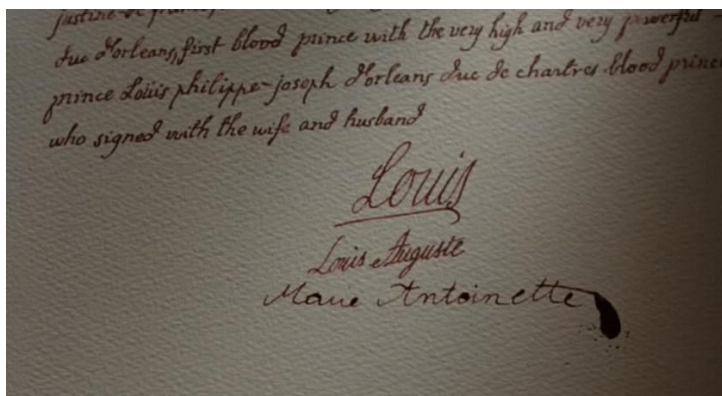 justine-de france,
duc d'orleans, first blood prince with the very high and very powerful
prince Loüis philippe-joseph d'orleans duc de chartres blood prince
who signed with the wife and husband
Louis
Louis Auguste
Marie Antoinette